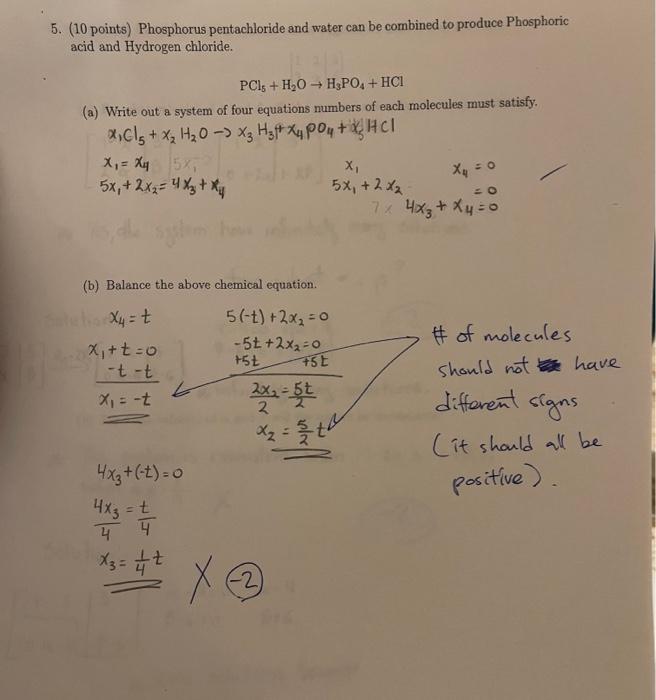 5. (10 points) Phosphorus pentachloride and water can be combined to produce Phosphoric
acid and Hydrogen chloride.
PCl₅ + H₂O → H₃PO₄ + HCl
(a) Write out a system of four equations numbers of each molecules must satisfy.
x₁Cl₅ + x₂ H₂O -> x₃ H₃ + x₄ PO₄ + x₅ HCl
x₁ = x₄ 5x₁
5x₁ + 2x₂ = 4x₃ + x₄
x₁ x₄ = 0
5x₁ + 2x₂ = 0
4x₃ + x₄ = 0
(b) Balance the above chemical equation.
x₄ = t
x₁ + t = 0
-t -t
x₁ = -t
5(-t) + 2x₂ = 0
-5t + 2x₂ = 0
+5t +5t
2x₂ = 5t
2 2
x₂ = 5/2 t
# of molecules
should not have
different signs
(it should all be
positive).
4x₃ + (-t) = 0
4x₃ = t
4 4
x₃ = 1/4 t
X -2